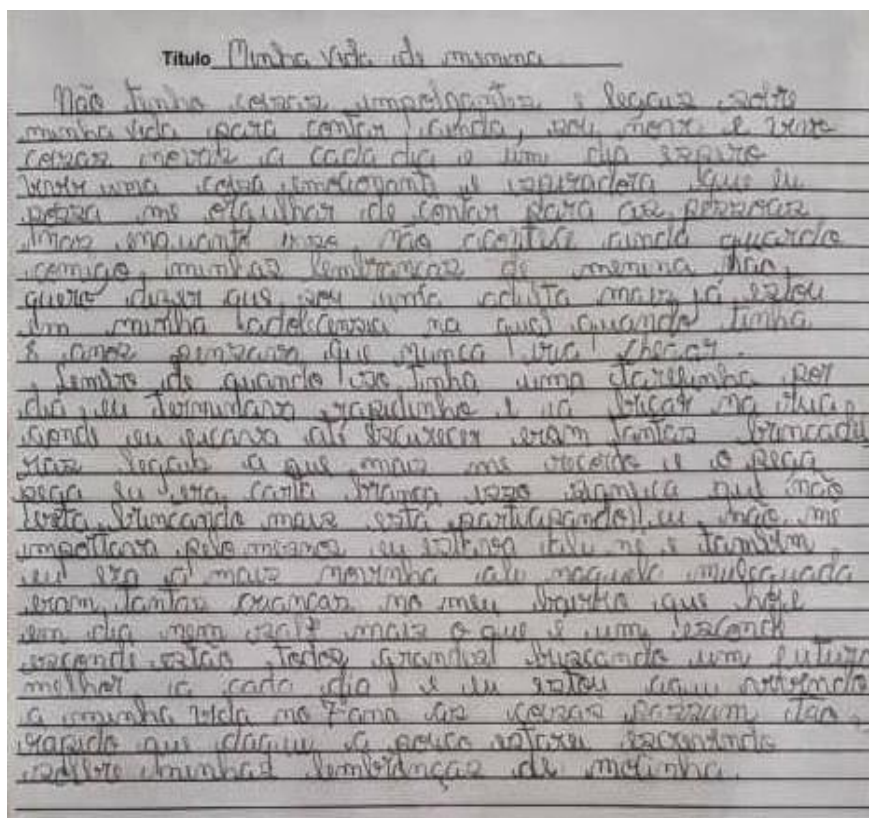 Título Minha vida de menina
Não tenho coisas empolgantes e legais sobre
minha vida para contar ainda, sou nova e vivo
coisas novas a cada dia e um dia espero
viver uma coisa emocionante e inspiradora que eu
possa me orgulhar de contar para as pessoas
mas enquanto isso não acontece ainda guardo
comigo, minhas lembranças de menina não
quero dizer que sou uma adulta mais já estou
em minha adolescencia na qual quando tinha
8 anos pensava que nunca iria chegar.
Lembro de quando só tinha uma tarefinha por
dia, eu terminava rapidinho e ia na rua,
aonde eu ficava até escurecer eram tantas brincadei
ras legais a que mais me recordo é o pega
pega eu era carta branca isso significa que não
está brincando mais está participando eu não me
importava pelo menos eu estava ali né e também
eu era a mais novinha ali naquela mulecada
eram tantas crianças no meu bairro que hoje
em dia nem sabe mais o que é um esconde
esconde estão todos grandes buscando um futuro
melhor a cada dia e eu estou aqui
a minha vida no 7 ano as coisas passam tão
rapido que daqui a pouco estarei escrevendo
sobre minhas lembranças de